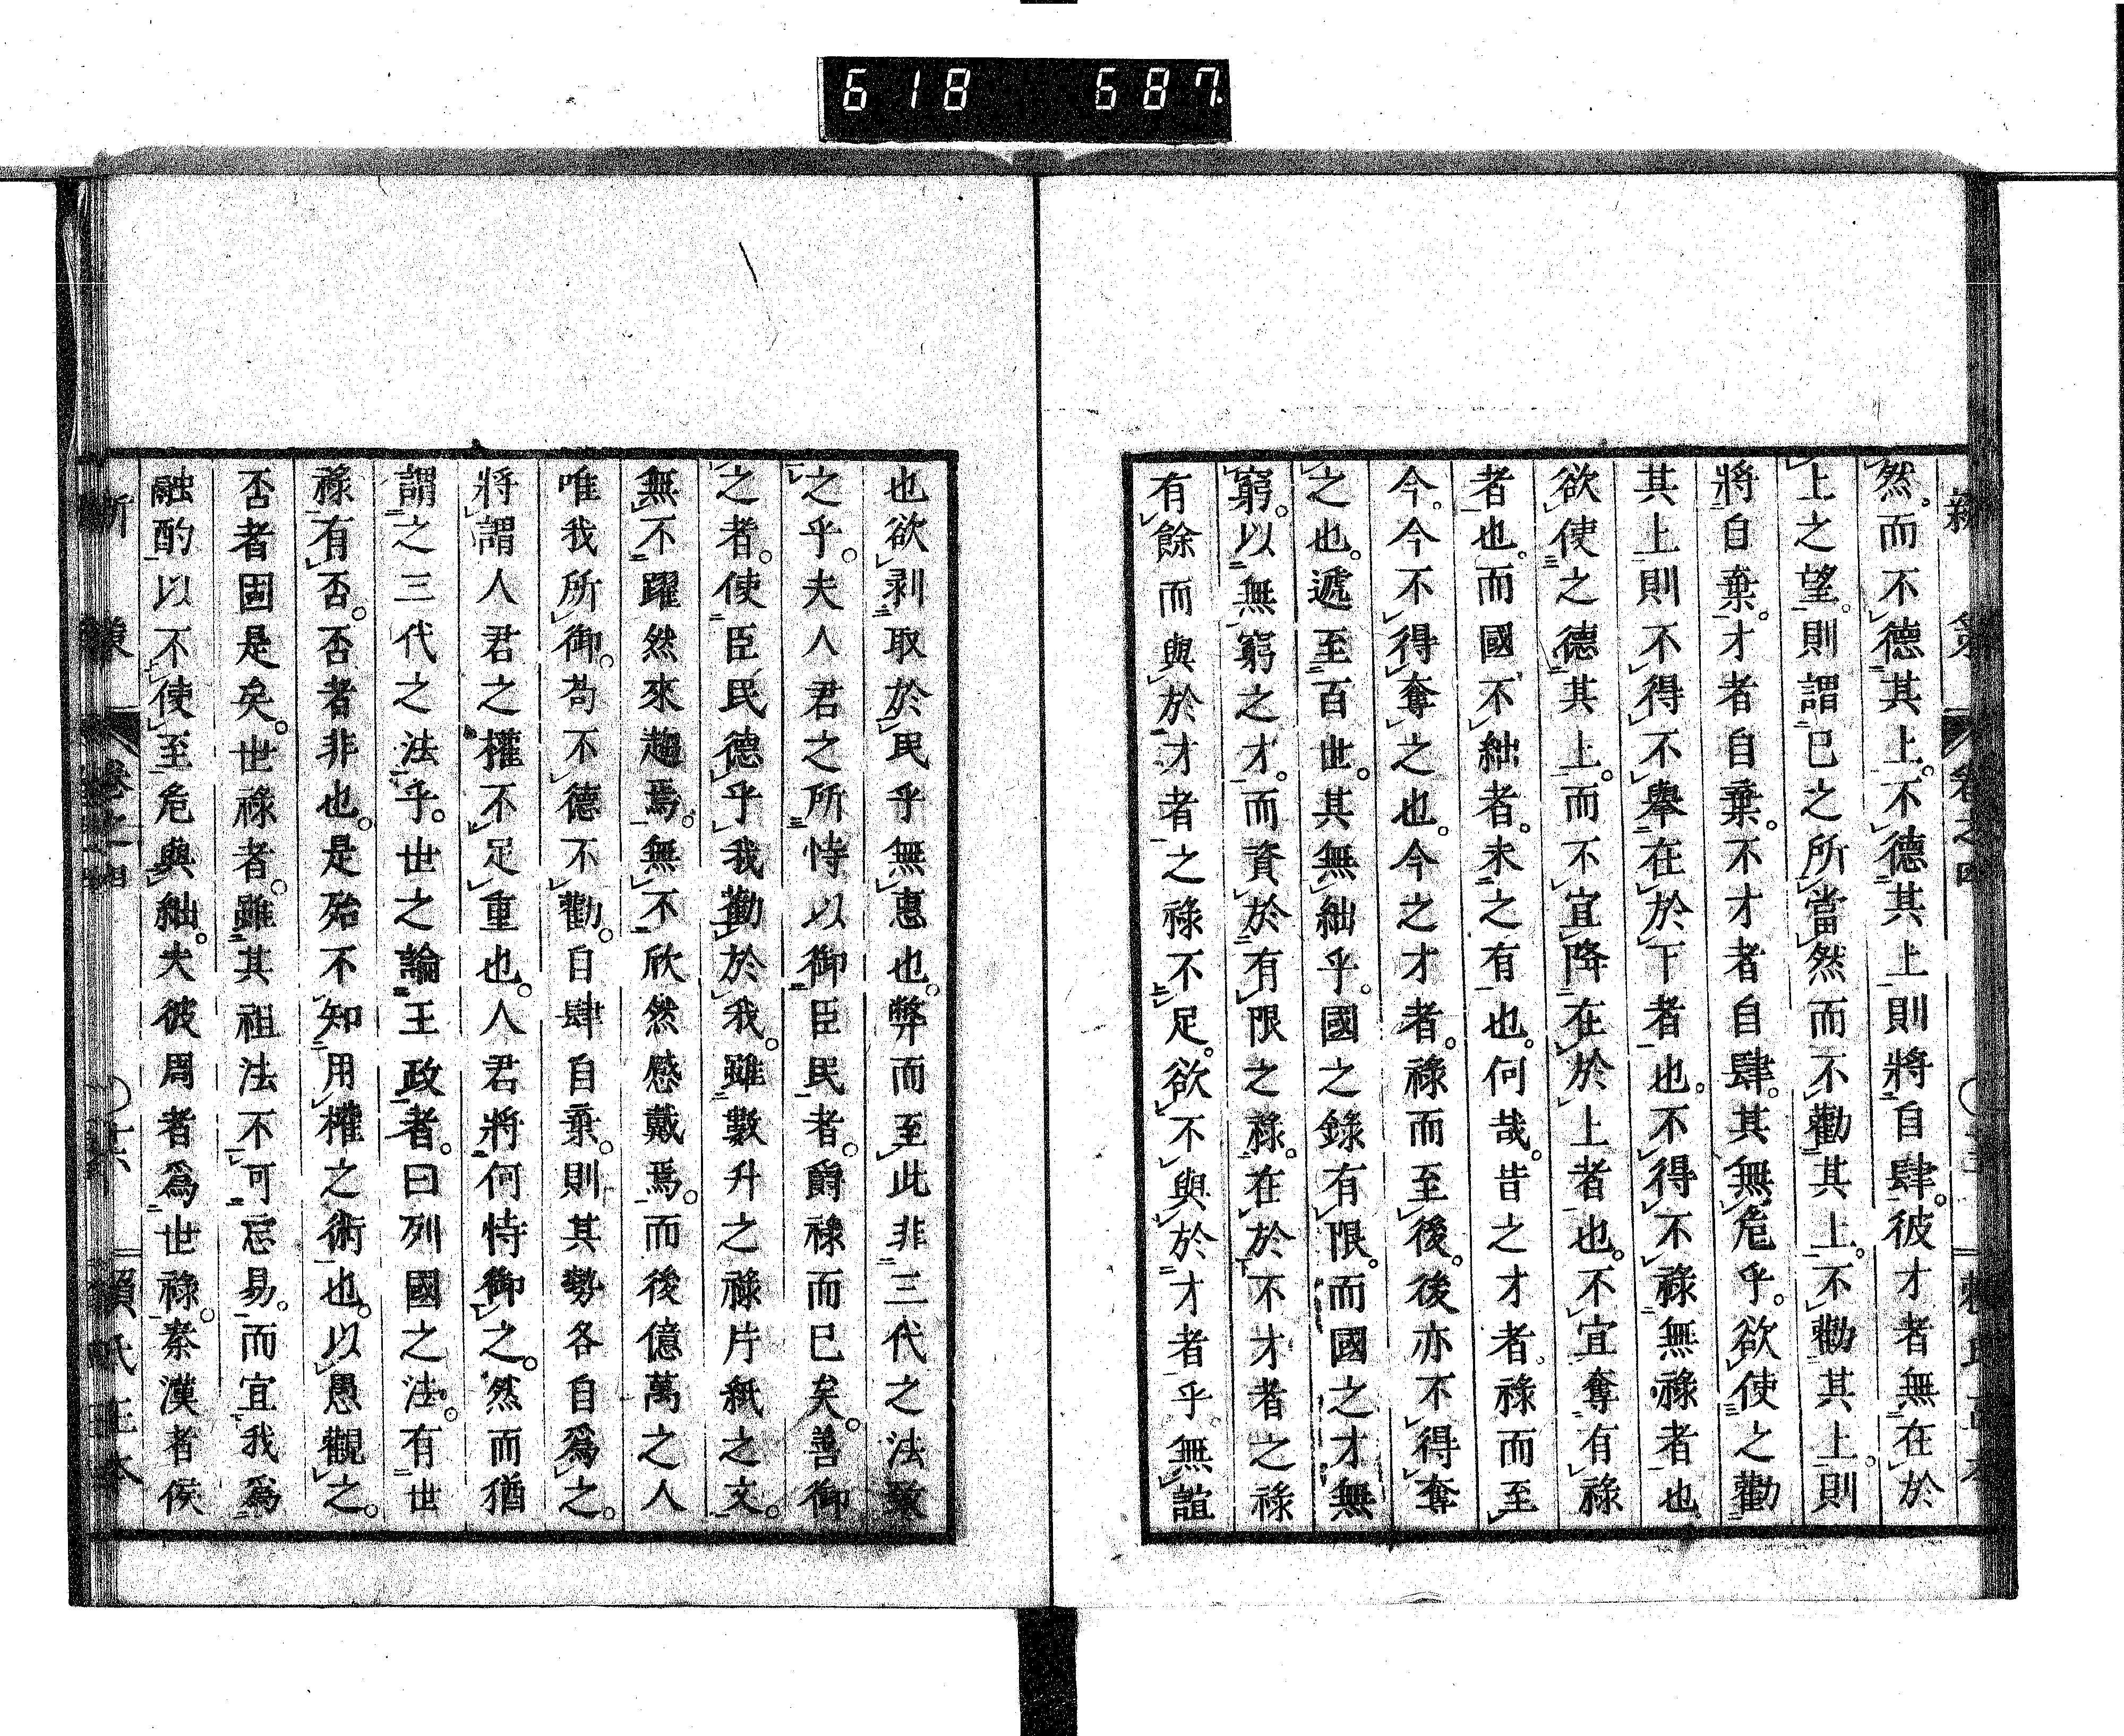 618 687
新策 卷之四 賴氏正本
然。而不德其上。不德其上則將自肆。彼才者無在於
上之望。則謂已之所當然而不勸其上。不勸其上。則
將自棄。才者自棄。不才者自肆。其無危乎。欲使之勸
其上則不得不舉在於下者也。不得不祿無祿者也。
欲使之德其上。而不宜降在於上者也。不宜奪有祿
者也。而國不絀者。未之有也。何哉。昔之才者祿而至
今。今不得奪之也。今之才者。祿而至後。後亦不得奪
之也。遞至百世。其無絀乎。國之錄有限。而國之才無
窮。以無窮之才。而資於有限之祿。在於不才者之祿
有餘而與於才者之祿不足。欲不與於才者乎。無誼
也欲剥取於民乎無惠也。弊而至此非三代之法致
之乎。夫人君之所恃以御臣民者。爵祿而已矣。善御
之者。使臣民德乎我勸於我。雖數升之祿片紙之文。
無不躍然來趨焉。無不欣然感戴焉。而後億萬之人
唯我所御。苟不德不勸。自肆自棄。則其勢各自爲之。
將謂人君之權不足重也。人君將何恃御之。然而猶
謂之三代之法乎。世之論王政者。曰列國之法。有世
祿有否。否者非也。是殆不知用權之術也。以愚觀之。
否者固是矣。世祿者。雖其祖法不可忘易。而宜我爲
融酌以不使至危與絀。夫彼周者爲世祿。秦漢者侯
新策 卷之四 賴氏正本